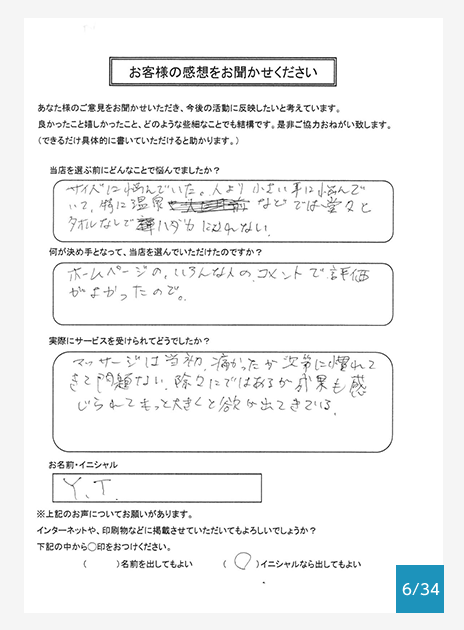 お客様の感想をお聞かせください
あなた様のご意見をお聞かせいただき、今後の活動に反映したいと考えています。
良かったこと嬉しかったこと、どのような些細なことでも結構です。是非ご協力おねがい致します。
（できるだけ具体的に書いていただけると助かります。）
当店を選ぶ前にどんなことで悩んでましたか？
サイズに悩んでいた。人より小さい事に悩んで
いて、特に温泉などでは堂々と
タオルなしでハダカになれない。
何が決め手となって、当店を選んでいただけたのですか？
ホームページの、いろんな人の、コメントで評価
がよかったので。
実際にサービスを受けられてどうでしたか？
マッサージは当初、痛かったが次第に慣れて
きて問題ない。除々にではあるが成果も感
じられてもっと大きくと欲が出てきている。
お名前・イニシャル
Y.T.
※上記のお声についてお願いがあります。
インターネットや、印刷物などに掲載させていただいてもよろしいでしょうか？
下記の中から○印をおつけください。
（　　）名前を出してもよい　　（○）イニシャルなら出してもよい
6/34